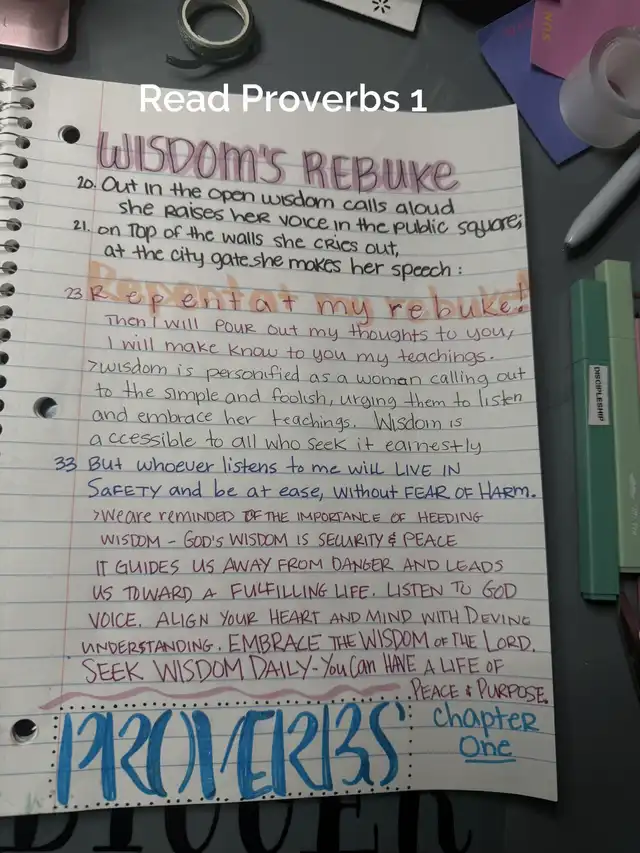 Read Proverbs 1
WISDOM'S REBUKE
20. Out in the open wisdom calls aloud
she raises her voice in the public square;
21. on top of the walls she cries out,
at the city gate she makes her speech:
23 Repent at my rebuke!
Then I will pour out my thoughts to you,
I will make know to you my teachings.
>wisdom is personified as a woman calling out
to the simple and foolish, urging them to listen
and embrace her teachings. Wisdom is
accessible to all who seek it earnestly
33 But whoever listens to me will LIVE IN
SAFETY and be at ease, without FEAR OF HARM.
>We are reminded OF THE IMPORTANCE OF HEEDING
WISDOM - GOD'S WISDOM IS SECURITY & PEACE
IT GUIDES US AWAY FROM DANGER AND LEADS
US TOWARD A FULFILLING LIFE. LISTEN TO GOD
VOICE. ALIGN YOUR HEART AND MIND WITH DEVINE
UNDERSTANDING. EMBRACE THE WISDOM OF THE LORD.
SEEK WISDOM DAILY - You Can HAVE A LIFE OF
PEACE & PURPOSE.
PROVERBS
chapter
One
DISCIPLESHIP